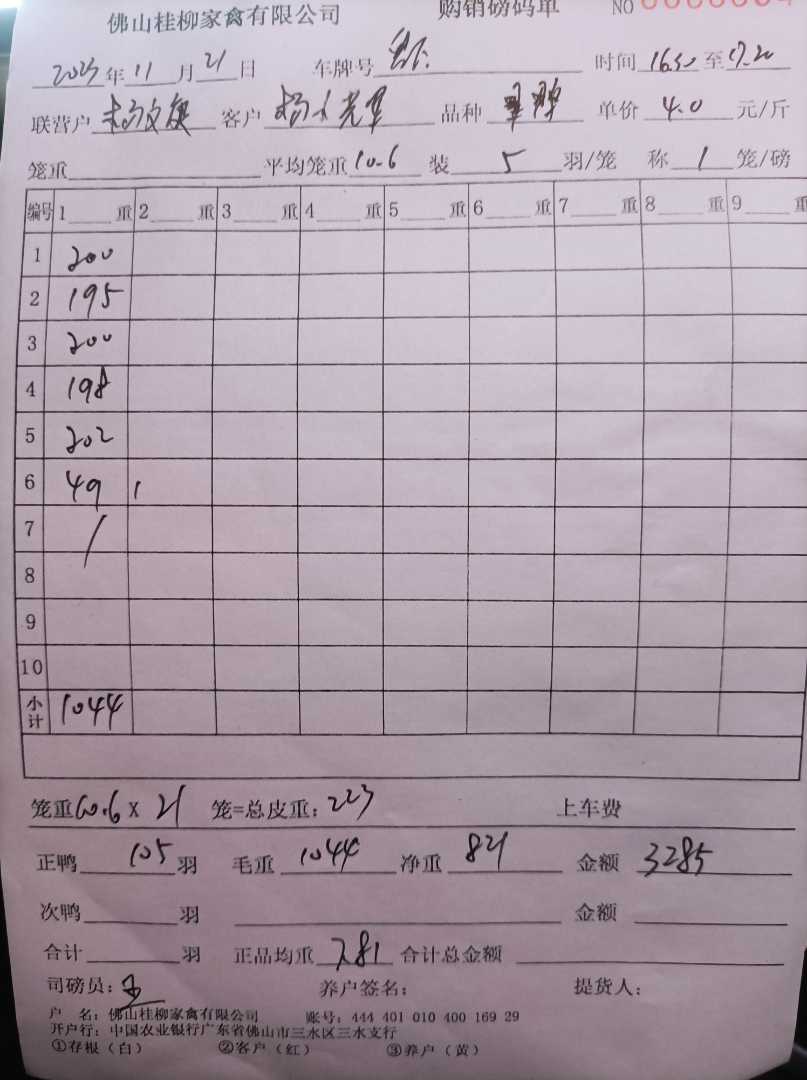 佛山桂柳家禽有限公司 购销磅码单 NO
2023年11月21日 车牌号 时间16.50至17.20
联营户 客户 品种 单价4.0元/斤
笼重 平均笼重10.6 装5羽/笼 称1笼/磅
编号 1 重 2 重 3 重 4 重 5 重 6 重 7 重 8 重 9 重
1 200
2 195
3 200
4 198
5 202
6 49 1
7 /
8
9
10
小计 1044
笼重10.6 x 21 笼=总皮重：223 上车费
正鸭105羽 毛重1044 净重821 金额3285
次鸭 羽 金额
合计 羽 正品均重7.81 合计总金额
司磅员： 养户签名： 提货人：
户 名：佛山桂柳家禽有限公司 账号：444 401 010 400 169 29
开户行：中国农业银行广东省佛山市三水区三水支行
①存根（白） ②客户（红） ③养户（黄）